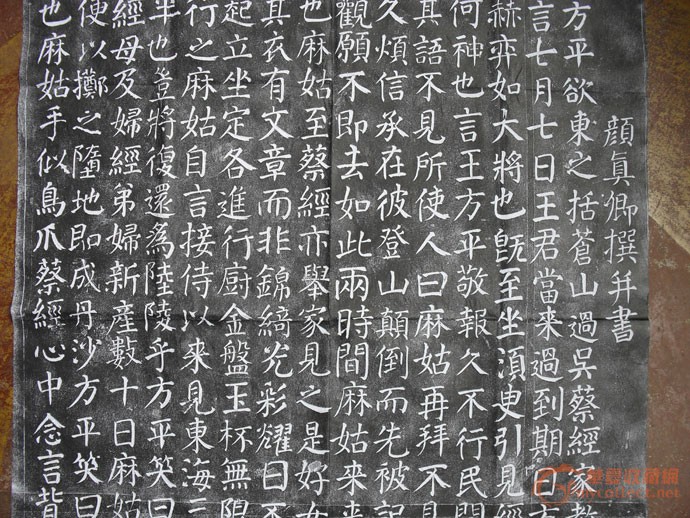 顏眞卿撰并書
方平欲東之括蒼山過吳蔡經家教
言七月七日王君當来過到期日方
赫弈如大將也旣至坐湏臾引見經
何神也言王方平敬報久不行民間
其語不見所使人曰麻姑再拜不見
久煩信承在彼登山顛倒而先被記
觀願不即去如此兩時間麻姑来来
也麻姑至蔡經亦舉家見之是好女
其衣有文章而非錦綺光彩耀日不
起立坐定各進行廚金盤玉杯無限
行之麻姑自言接侍以来見東海三
半也豈將復還為陸陵乎方平笑曰
經母及婦經弟婦新產數十日麻姑
使以擲之墮地即成丹沙方平笑曰
也麻姑手似鳥爪蔡經心中念言背
華夏收藏網
mycollect.net